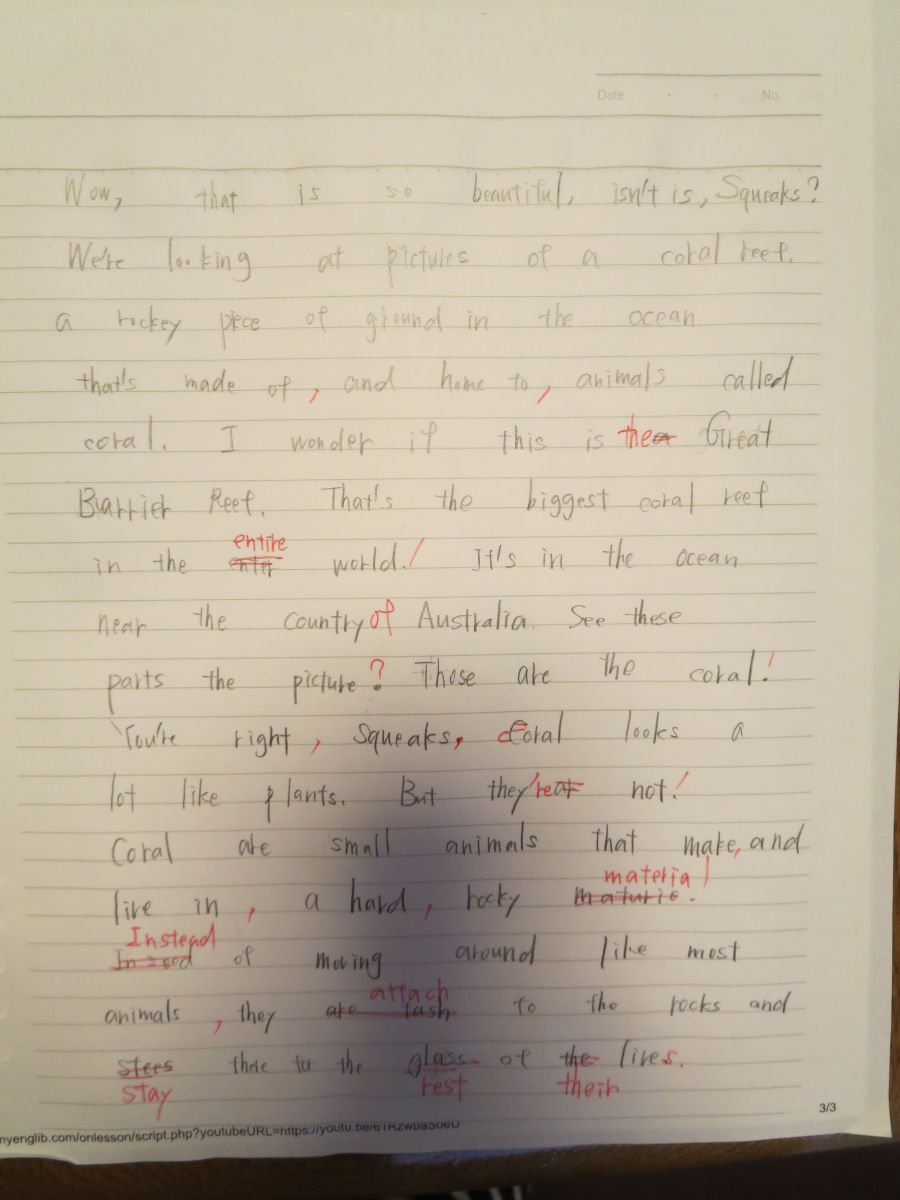 Date . . No.
Wow, that is so beautiful, isn't is, Squeaks?
We're looking at pictures of a coral reef.
a rockey piece of ground in the ocean
that's made of, and home to, animals called
coral. I wonder if this is the a Great
Barrier Reef. That's the biggest coral reef
entire
in the enter world.! It's in the ocean
near the country of Australia. See these
parts the picture? Those are the coral!
You're right, Squeaks, Coral looks a
lot like plants. But they're at not!
Coral are small animals that make, and
material
live in, a hard, rocky maturic.
Instead
Inseed of moving around like most
attach
animals, they are tash to the rocks and
stees there for the glass of the lives.
stay rest their
3/3